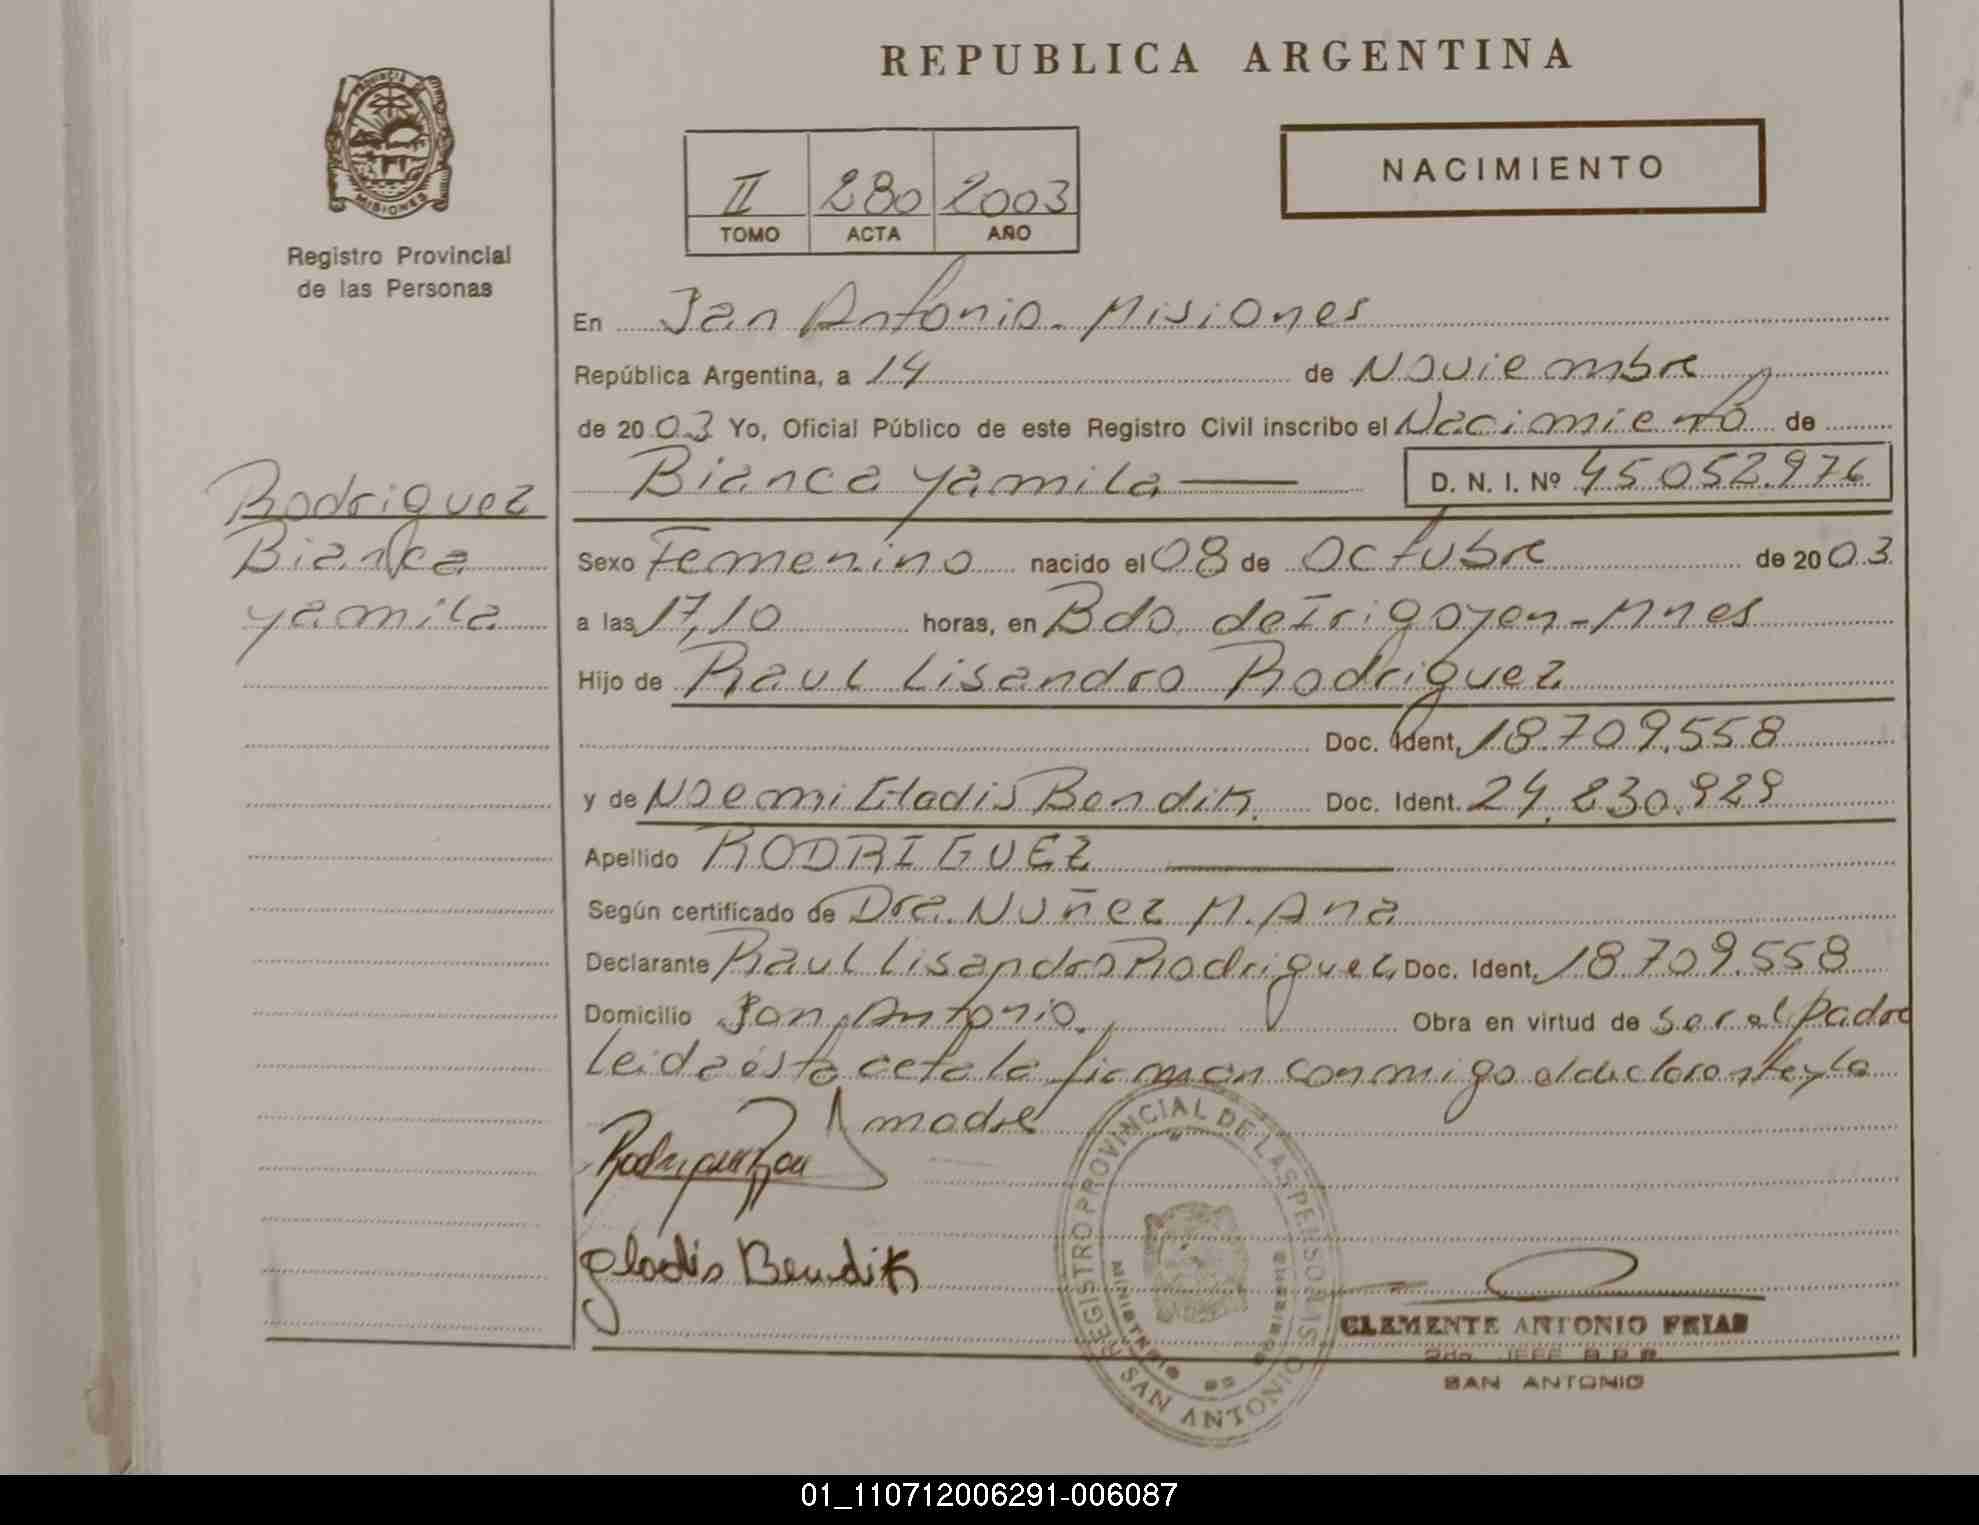 REPUBLICA ARGENTINA
NACIMIENTO
II 280 2003
TOMO ACTA AÑO
PROVINCIA
MISIONES
Registro Provincial
de las Personas
Rodriguez
Bianca
Yamila
En San Antonio - Misiones
República Argentina, a 14 de Noviembre
de 2003 Yo, Oficial Público de este Registro Civil inscribo el Nacimiento de
Bianca Yamila D. N. I. Nº 45.052.976
Sexo Femenino nacido el 08 de Octubre de 2003
a las 17,10 horas, en Bdo. de Irigoyen - Mnes
Hijo de Raul Lisandro Rodriguez
Doc. Ident. 18.709.558
y de Noemi Gladis Bendik Doc. Ident. 24.830.929
Apellido RODRIGUEZ
Según certificado de Dra. Nuñez M. Ana
Declarante Raul Lisandro Rodriguez Doc. Ident. 18.709.558
Domicilio San Antonio. Obra en virtud de ser el padre
Leida ésta acta la firman conmigo el declarante y la
madre
Gladis Bendik
REGISTRO PROVINCIAL DE LAS PERSONAS
SAN ANTONIO
MINISTERIO DE GOBIERNO
CLEMENTE ANTONIO FRIAS
2do. JEFE R.P.P.
SAN ANTONIO
01_110712006291-006087